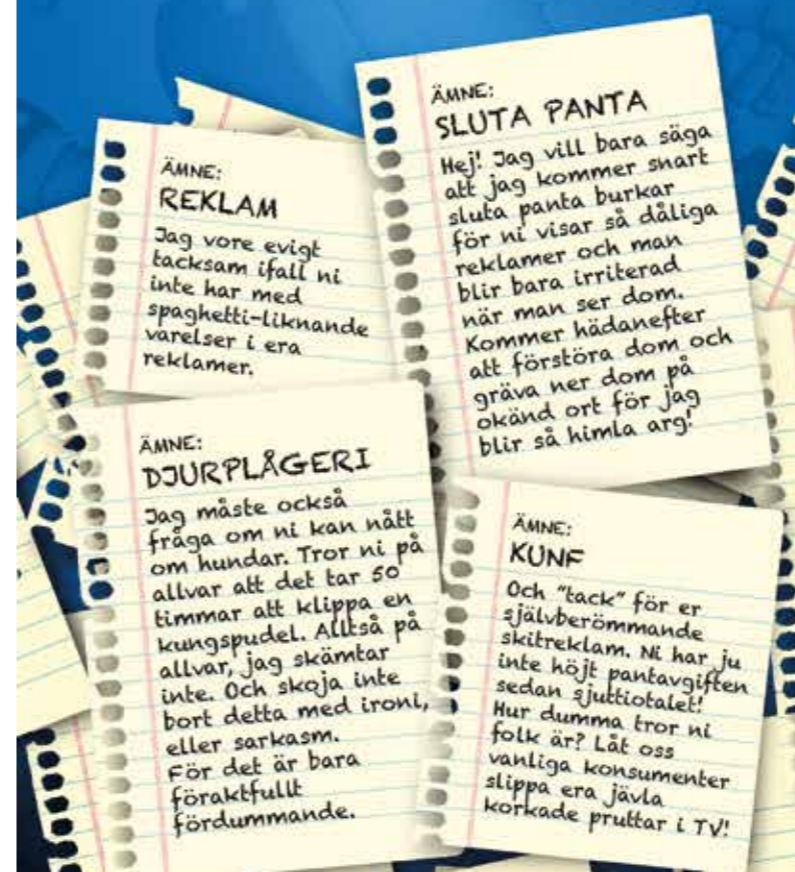 ÄMNE:
REKLAM
Jag vore evigt
tacksam ifall ni
inte har med
spaghetti-liknande
varelser i era
reklamer.
ÄMNE:
SLUTA PANTA
Hej! Jag vill bara säga
att jag kommer snart
sluta panta burkar
för ni visar så dåliga
reklamer och man
blir bara irriterad
när man ser dom.
Kommer hädanefter
att förstöra dom och
gräva ner dom på
okänd ort för jag
blir så himla arg!
ÄMNE:
DJURPLÅGERI
Jag måste också
fråga om ni kan nått
om hundar. Tror ni på
allvar att det tar 50
timmar att klippa en
kungspudel. Alltså på
allvar, jag skämtar
inte. Och skoja inte
bort detta med ironi,
eller sarkasm.
För det är bara
föraktfullt
fördummande.
ÄMNE:
KUNF
Och "tack" för er
självberömmande
skitreklam. Ni har ju
inte höjt pantavgiften
sedan sjuttiotalet!
Hur dumma tror ni
folk är? Låt oss
vanliga konsumenter
slippa era jävla
korkade pruttar i TV!